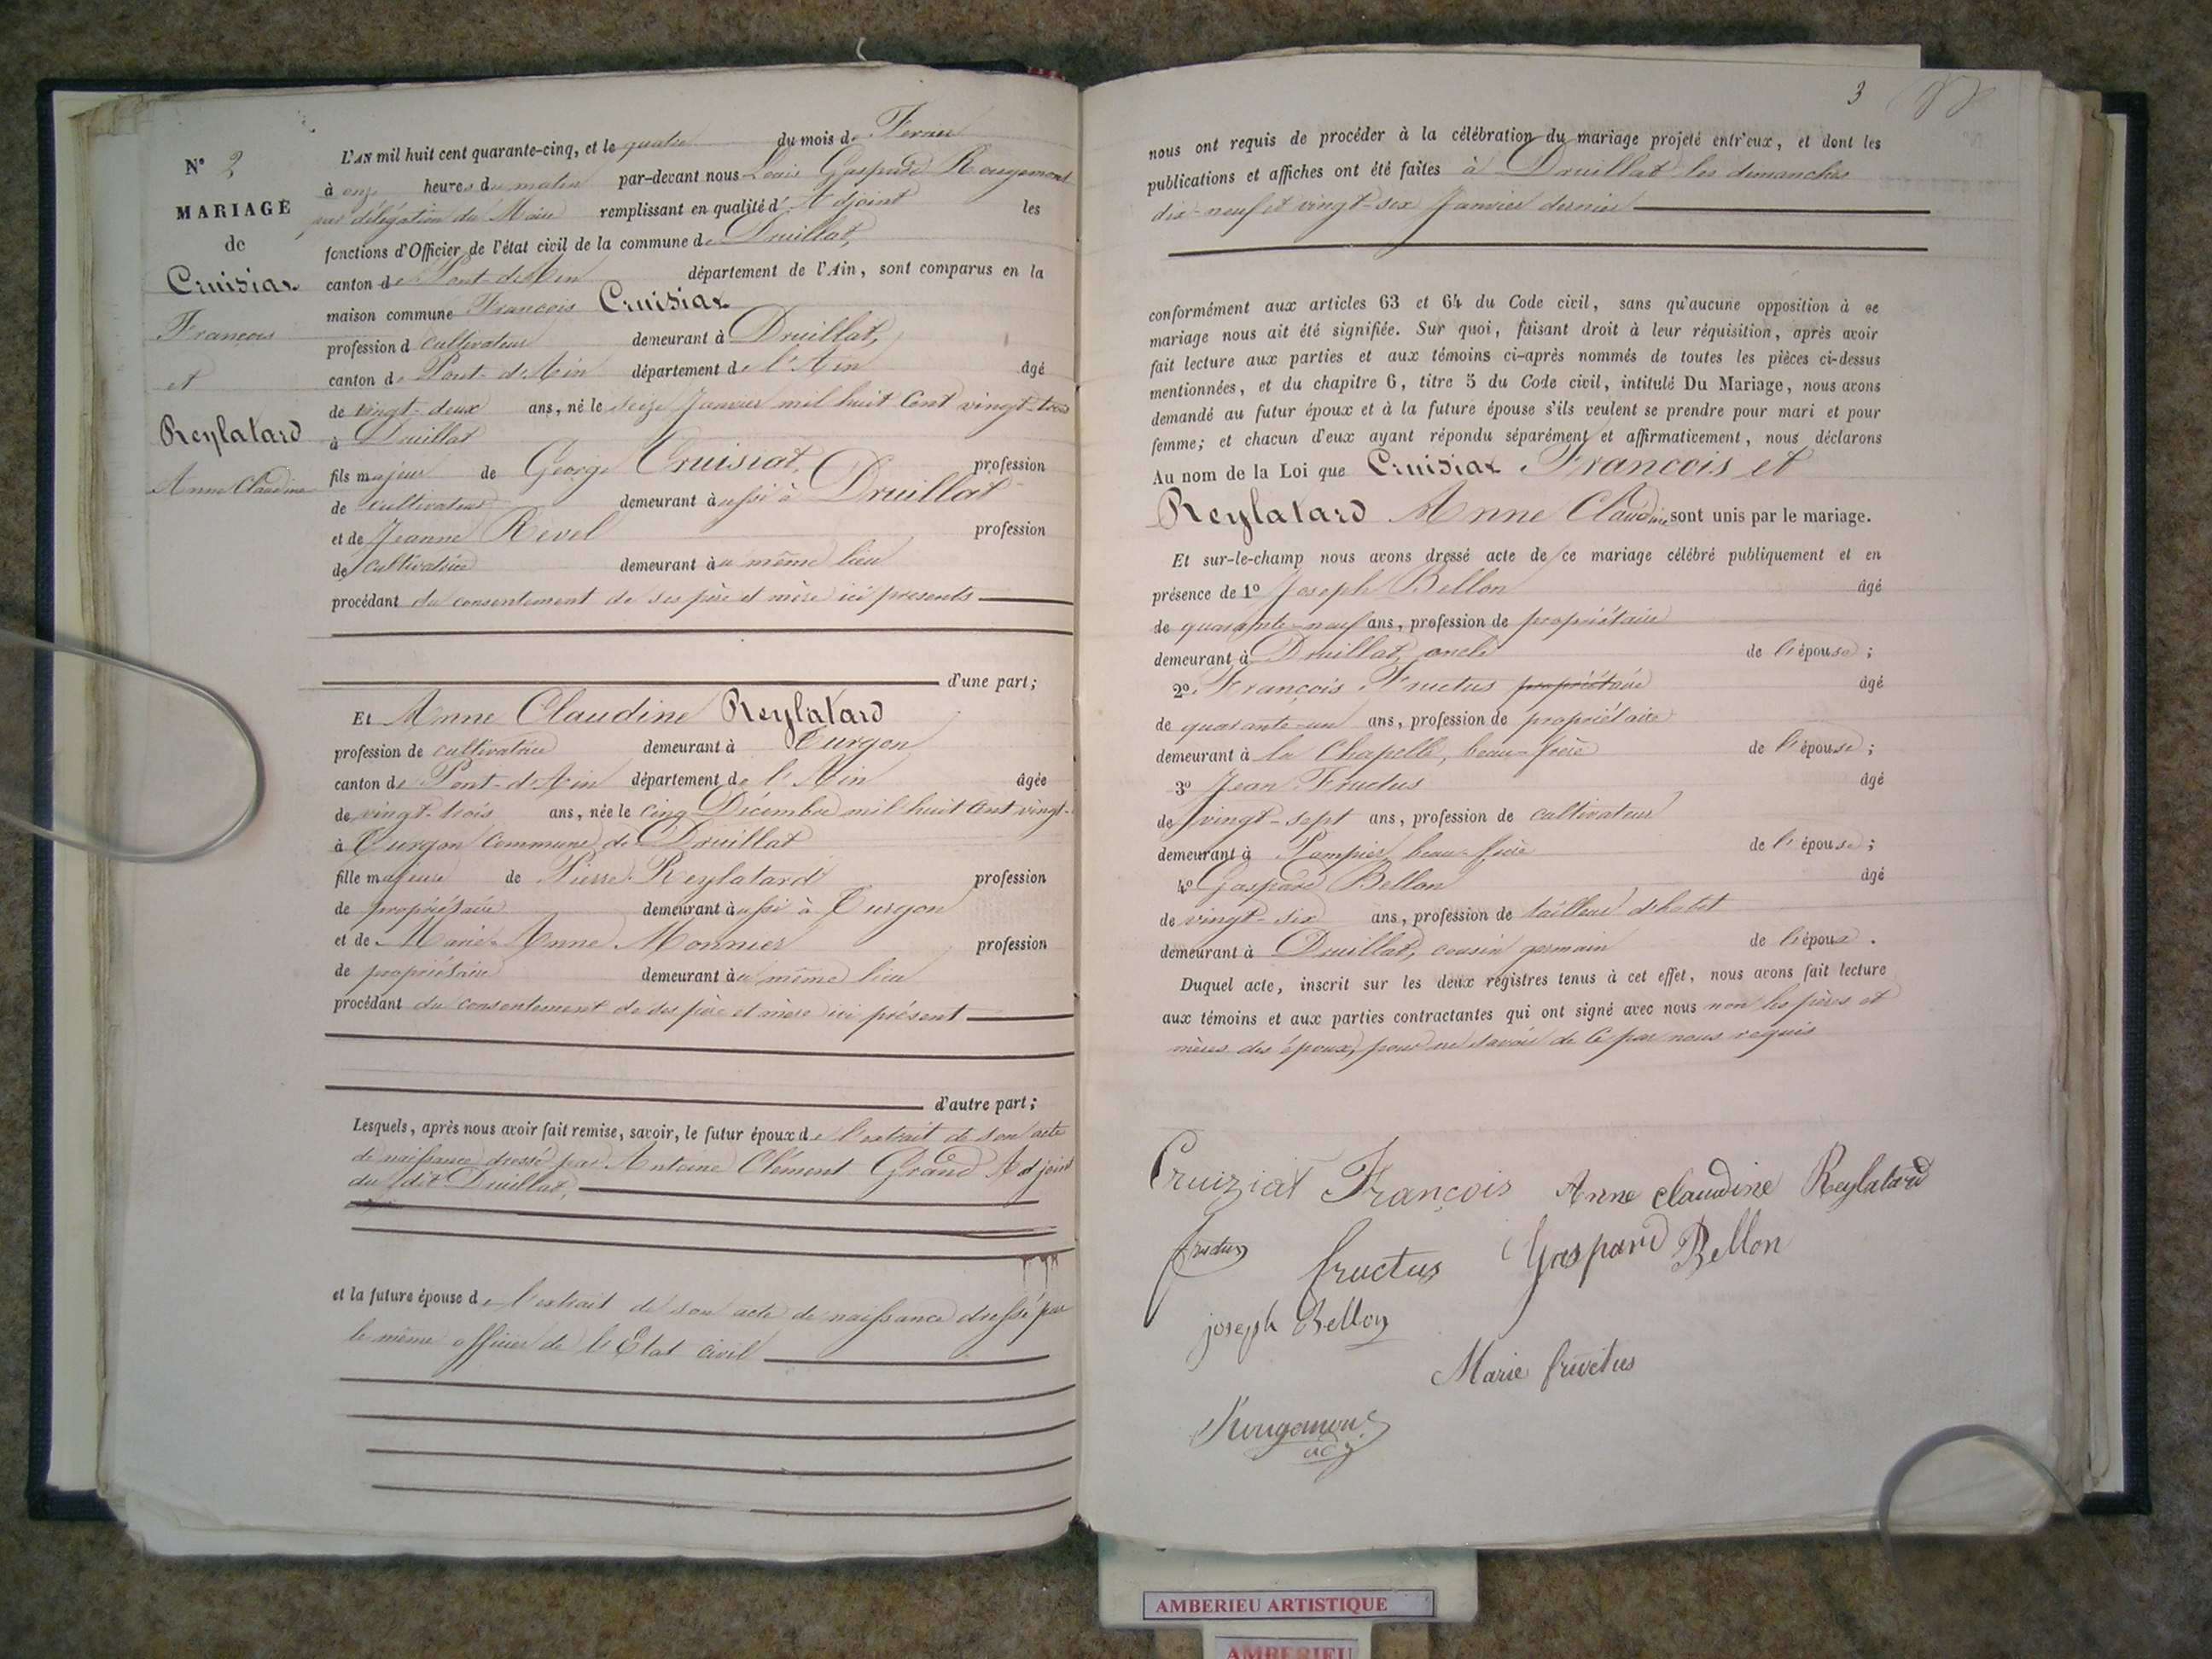 N° 2
MARIAGE
de
Cruisiat
François
et
Reylatard
Anne Claudine
L'AN mil huit cent quarante-cinq, et le quatre du mois de Fevrier
à onze heures du matin par-devant nous Louis Gaspard Rougemont
par délégation du Maire remplissant en qualité d'Adjoint les
fonctions d'Officier de l'état civil de la commune de Druillat,
canton de Pont-d'Ain département de l'Ain, sont comparus en la
maison commune François Cruisiat
profession d cultivateur demeurant à Druillat,
canton de Pont-d'Ain département de l'Ain âgé
de vingt-deux ans, né le seize Janvier mil huit Cent vingt-trois
à Druillat
fils majeur de George Cruisiat, profession
de cultivateur demeurant aussi à Druillat
et de Jeanne Revel profession
de cultivatrice demeurant au même lieu
procédant du consentement de ses père et mère ici présents
d'une part;
Et Anne Claudine Reylatard
profession de cultivatrice demeurant à Turgon
canton de Pont-d'Ain département de l'Ain âgée
de vingt-trois ans, née le cinq Décembre mil huit Cent vingt-
à Turgon Commune de Druillat
fille majeure de Pierre Reylatard profession
de propriétaire demeurant aussi à Turgon
et de Marie-Anne Monnier profession
de propriétaire demeurant au même lieu
procédant du consentement de ses père et mère ici présent
d'autre part;
Lesquels, après nous avoir fait remise, savoir, le futur époux de l'extrait de son acte
de naissance dressé par Antoine Clément Grand Adjoint
du dit Druillat,
et la future épouse de l'extrait de son acte de naissance dressé par
le même officier de l'Etat civil
3
nous ont requis de procéder à la célébration du mariage projeté entr'eux, et dont les
publications et affiches ont été faites à Druillat les dimanches
dix-neuf et vingt-six Janvier dernier
conformément aux articles 63 et 64 du Code civil, sans qu'aucune opposition à ce
mariage nous ait été signifiée. Sur quoi, faisant droit à leur réquisition, après avoir
fait lecture aux parties et aux témoins ci-après nommés de toutes les pièces ci-dessus
mentionnées, et du chapitre 6, titre 5 du Code civil, intitulé Du Mariage, nous avons
demandé au futur époux et à la future épouse s'ils veulent se prendre pour mari et pour
femme; et chacun d'eux ayant répondu séparément et affirmativement, nous déclarons
Au nom de la Loi que Cruisiat François et
Reylatard Anne Claudine sont unis par le mariage.
Et sur-le-champ nous avons dressé acte de ce mariage célébré publiquement et en
présence de 1° Joseph Bellon âgé
de quarante-neuf ans, profession de propriétaire
demeurant à Druillat, oncle de l'épouse;
2° François Fructus propriétaire âgé
de quarante-un ans, profession de propriétaire
demeurant à la Chapelle, beau-frère de l'épouse;
3° Jean Fructus âgé
de vingt-sept ans, profession de cultivateur
demeurant à Rampier, beau-frère de l'épouse;
4° Gaspard Bellon âgé
de vingt-six ans, profession de tailleur d'habit
demeurant à Druillat, cousin germain de l'époux.
Duquel acte, inscrit sur les deux registres tenus à cet effet, nous avons fait lecture
aux témoins et aux parties contractantes qui ont signé avec nous non les pères et
mères des époux, pour ne savoir de Ce par nous requis
Cruiziat François Anne claudine Reylatard
fructus fructus Gaspard Bellon
joseph Bellon
Marie fructus
Rougemont
adj
AMBERIEU ARTISTIQUE
AMBERIEU